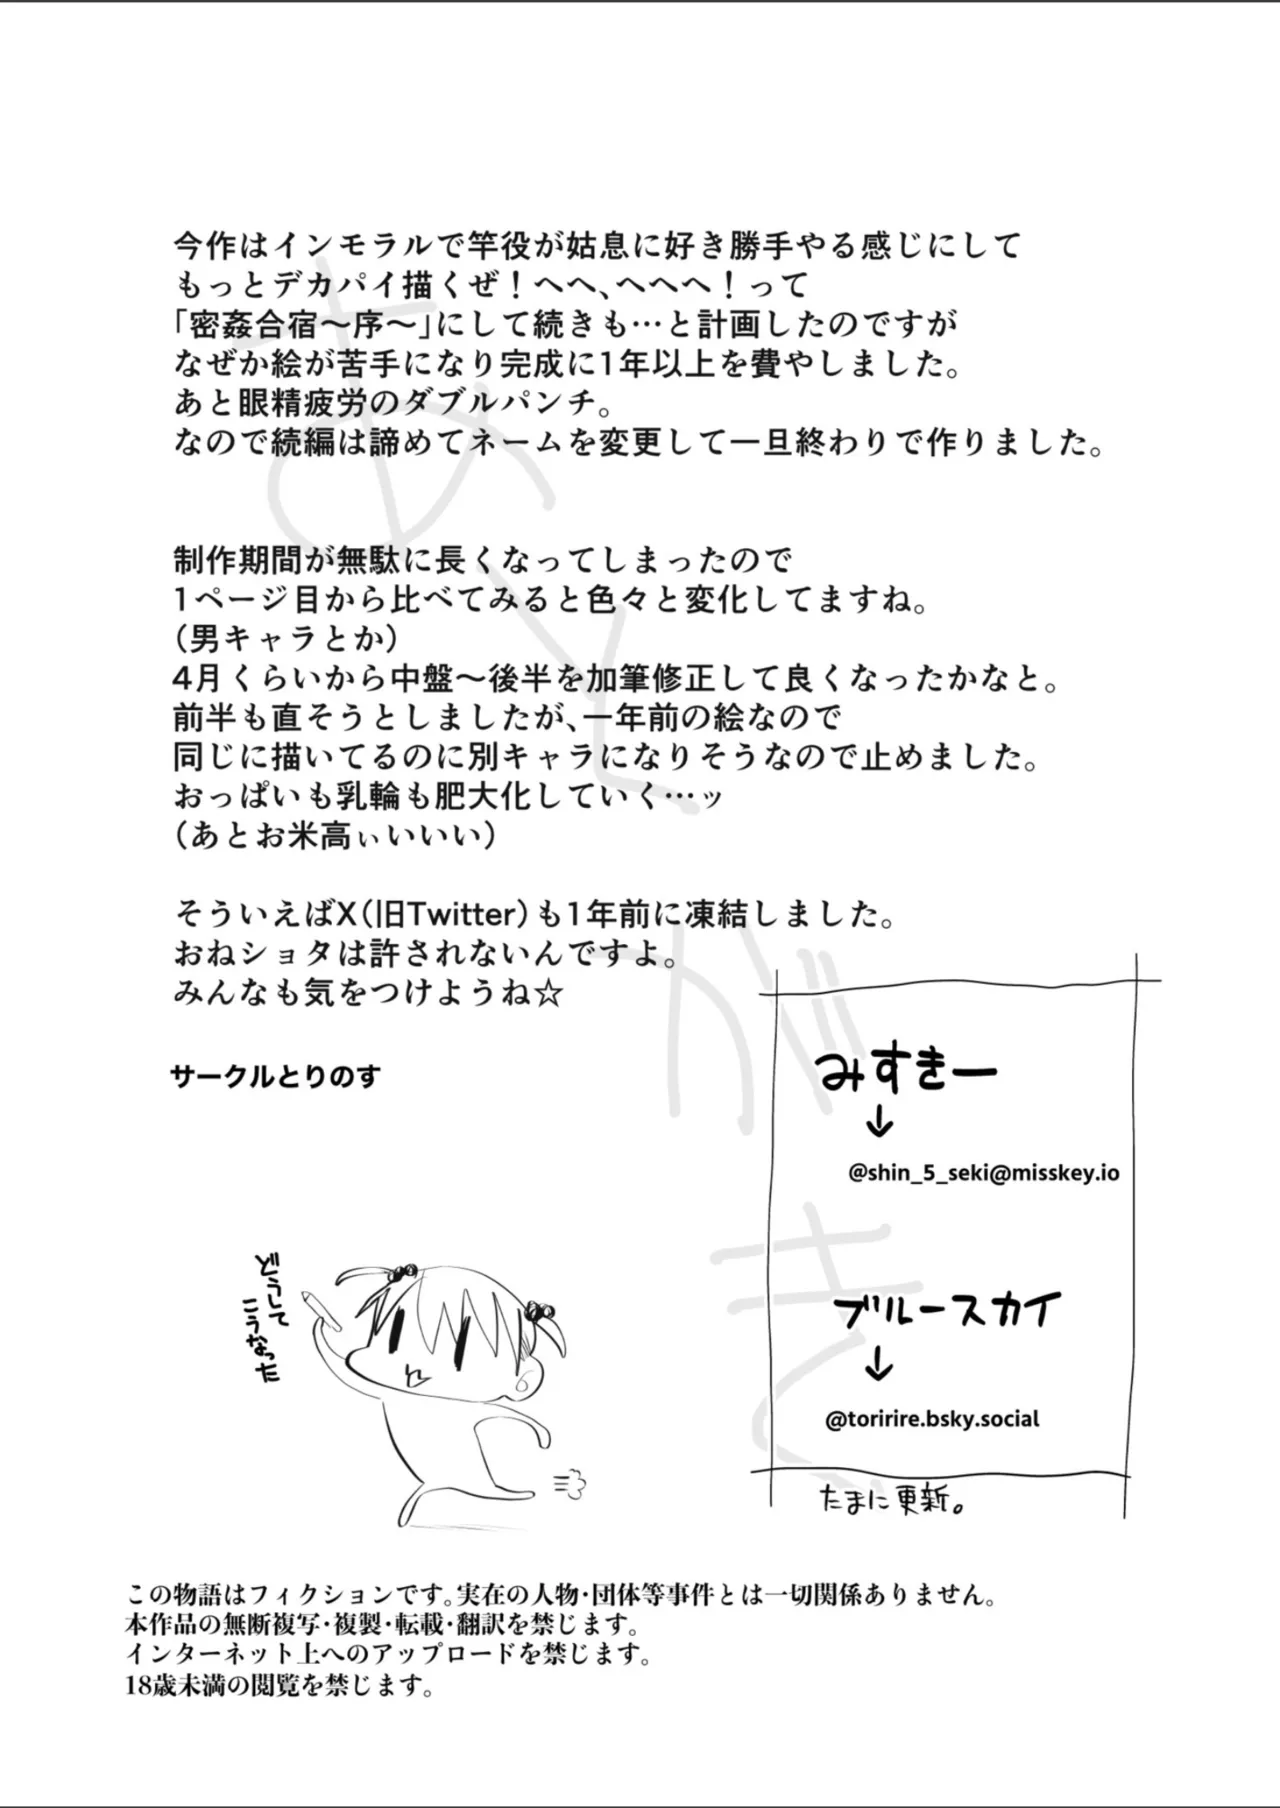 あとがき
今作はインモラルで竿役が姑息に好き勝手やる感じにして
もっとデカパイ描くぜ！へへ、へへへ！って
「密姦合宿～序～」にして続きも…と計画したのですが
なぜか絵が苦手になり完成に1年以上を費やしました。
あと眼精疲労のダブルパンチ。
なので続編は諦めてネームを変更して一旦終わりで作りました。
制作期間が無駄に長くなってしまったので
1ページ目から比べてみると色々と変化してますね。
（男キャラとか）
4月くらいから中盤～後半を加筆修正して良くなったかなと。
前半も直そうとしましたが、一年前の絵なので
同じに描いてるのに別キャラになりそうなので止めました。
おっぱいも乳輪も肥大化していく…ッ
（あとお米高ぃいいい）
そういえばX（旧Twitter）も1年前に凍結しました。
おねショタは許されないんですよ。
みんなも気をつけようね☆
サークルとりのす
みすきー
↓
@shin_5_seki@misskey.io
ブルースカイ
↓
@toririre.bsky.social
たまに更新。
どうして
こうなった
この物語はフィクションです。実在の人物・団体等事件とは一切関係ありません。
本作品の無断複写・複製・転載・翻訳を禁じます。
インターネット上へのアップロードを禁じます。
18歳未満の閲覧を禁じます。